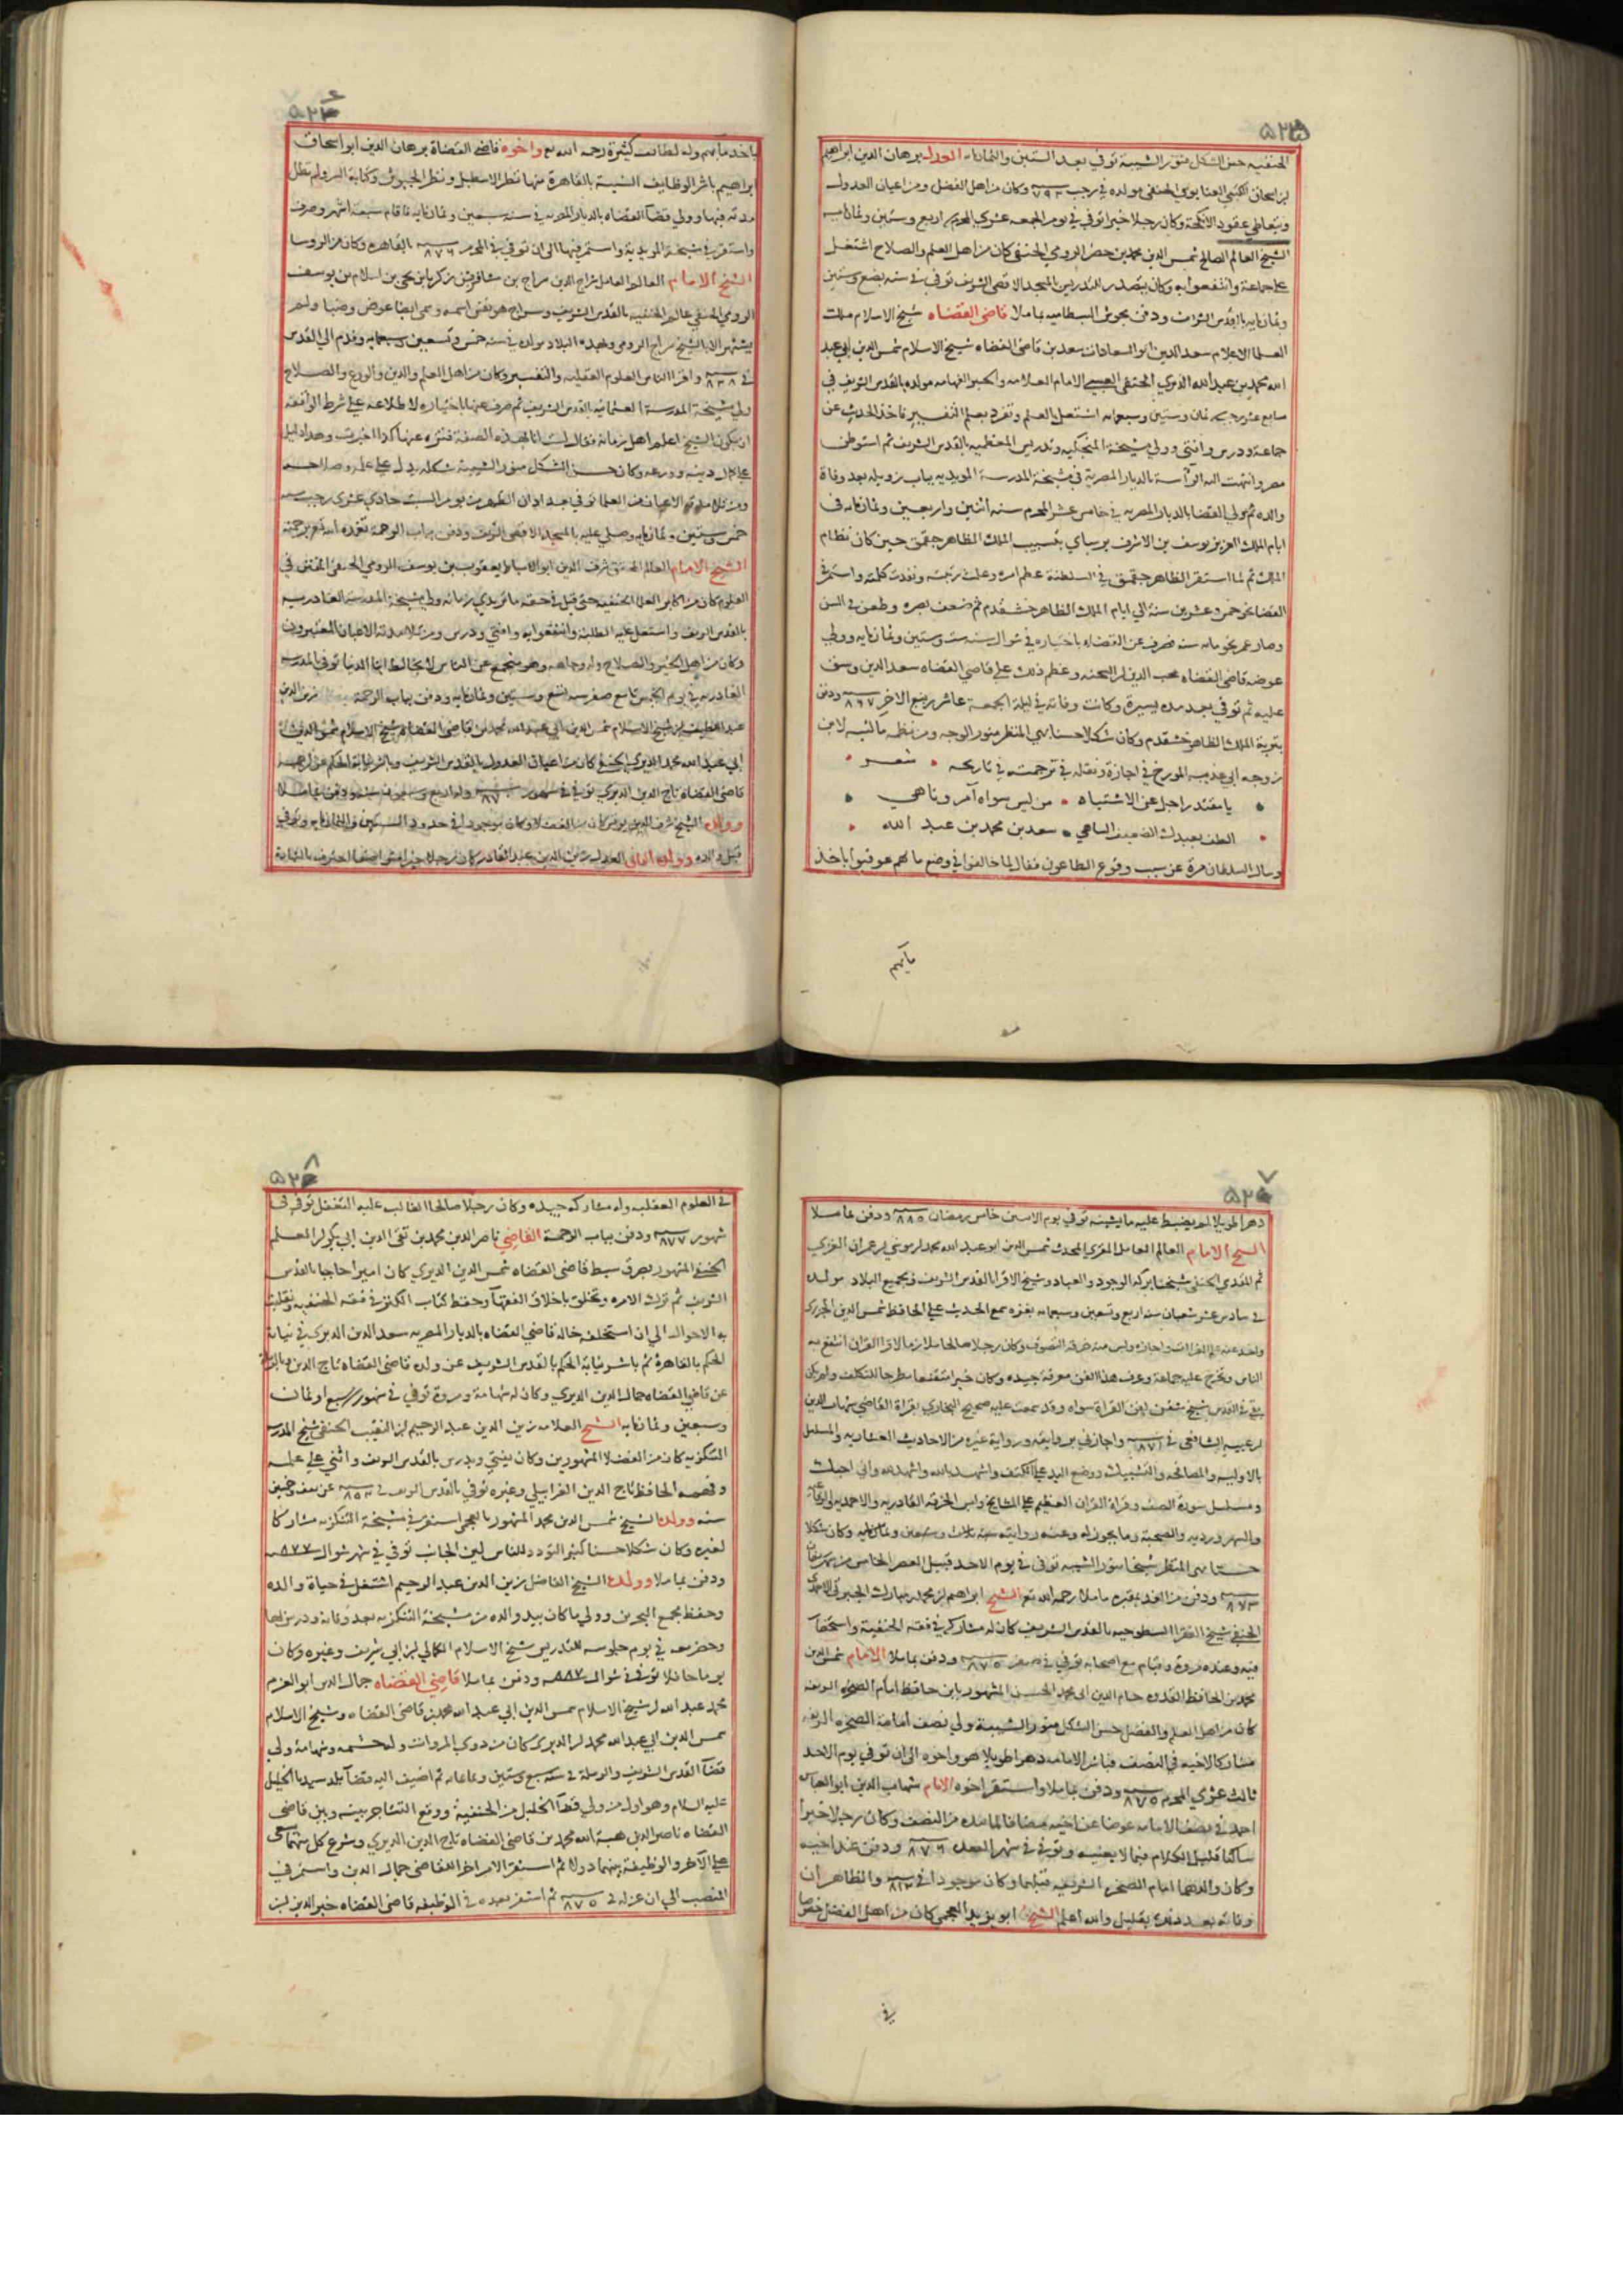 الحنفيه حسن الشكل منور الشيبة توفي بعد الستين والثمانمائة العدل برهان الدين ابراهيم
وكان من اهل الفضل ومن اعيان العدول
ويتعاطي عقود الانكحة وكان رجلا خيرا توفي في يوم الجمعه عشري المحرم اربع وستين وثمانمايه
الشيخ العالم الصالح شمس الدين محمد بن خضر الرومي الحنفي كان من اهل العلم والصلاح اشتغل
عليه جماعة وانتفعوا به وكان يتصدر للتدريس بالمسجد الاقصي الشريف توفي في سنه بضع وستين
وثمانمايه بالقدس الشريف ودفن بحوش البسطاميه بماملا قاضي القضاه شيخ الاسلام ملك
العلما الاعلام سعد الدين ابو السعادات سعد بن قاضي القضاه شيخ الاسلام شمس الدين ابي عبد
الله محمد بن عبد الله الديري الحنفي العبسي الامام العلامه والحبر الفهامه مولده بالقدس الشريف في
سابع عشر رجب سنه ثمان وستين وسبعمايه اشتغل بالعلم وتفرد بعلم التفسير فاخذ الحديث عن
جماعة ودرس وافتي وولي مشيخة المنجكيه وتدريس المعظميه بالقدس الشريف ثم استوطن
مصر وانتهت اليه الرآسة بالديار المصرية في مشيخة المدرسة المويديه بباب زويله بعد وفاة
والده ثم ولي القضا بالديار المصريه في خامس عشر المحرم سنه اثنين واربعين وثمانمايه في
ايام الملك العزيز يوسف بن الاشرف برسباي بتسبيب الملك الظاهر جقمق حين كان نظام
الملك ثم لما استقر الظاهر جقمق في السلطنة عظم امره وعلت رتبته ونفدت كلمته واستمر في
القضا نحو خمس وعشرين سنة الي ايام الملك الظاهر خشقدم ثم ضعف بصره وطعن في السن
وصار عمره نحو مايه سنه فصرف عن القضاء باختياره في شوال سنه ست وستين وثمانمايه وولي
عوضه قاضي القضاه محب الدين ابن الشحنه وعظم ذلك علي قاضي القضاه سعد الدين وشق
عليه ثم توفي بعد مده يسيرة وكانت وفاته في ليلة الجمعة عاشر ربيع الاخر سنه ٨٦٧ ودفن
بتربة الملك الظاهر خشقدم وكان شكلا حسنا بهي المنظر منور الوجه ومن نظمه ما كتبه لابن
زوجه ابي عذيبه المورخ في اجازة ونقله في ترجمته في تاريخه شعر
يا مقتدرا جل عن الاشتباه من ليس سواه آمر وناهي
الطف بعبدك الضعيف الساهي سعد بن محمد بن عبد الله
وساله السلطان مرة عن سبب وقوع الطاعون فقال لما خالفوا في وضع ما لهم عوقبوا باخذ
مالهم
باخذ مالهم وله لطائف كثيرة رحمه الله تع واخوه قاضي القضاة برهان الدين ابو اسحاق
ابراهيم باشر الوظايف السنية بالقاهرة منها نظر الاسطبل ونظر الجيوش وكتابة السر ولم تطل
مدته فيها وولي قضآ القضاه بالديار المصريه في سنه سبعين وثمانمايه فاقام سبعة اشهر وصرف
واستقر في مشيخة المويدية واستمر فيها الي ان توفي في المحرم سنه ٨٧٦ بالقاهره وكان من الروسا
الشيخ الامام العالم العامل سراج الدين سراج بن مسافر بن زكريا بن يحيي بن اسلام بن يوسف
الرومي الحنفي عالم الحنفيه بالقدس الشريف
يشتهر الا بالشيخ سراج الرومي ومولده في سنه خمس وتسعين وسبعمايه وقدم الي القدس
في سنه ٨٢٨ واقرا الناس العلوم العقليه والتفسير وكان من اهل العلم والدين والورع والصلاح
ولي مشيخة المدرسة العثمانيه بالقدس الشريف ثم صرف عنها باختياره لاطلاعه علي شرط الواقفه
ان يكون الشيخ اعلم اهل زمانه فقال لست انا بهذه الصفة فتنزه عنها كذا اخبرت وهذا دليل
علي كمال دينه وورعه وكان حسن الشكل منور الشيبة شكله يدل علي علمه وصلاحه
ومن تلامذته الاعيان من العلما توفي بعد اذان الظهر من يوم السبت حادي عشري رجب سنه
خمس وستين وثمانمايه وصلي عليه بالمسجد الاقصي الشريف ودفن بباب الرحمة تغمده الله تع برحمته
الشيخ الامام العالم المحقق شرف الدين ابو الاسباط يعقوب بن يوسف الرومي الحنفي المتفنن في
العلوم كان من اكابر العلما الحنفيه حتي قيل في حقه ماتريدي زمانه ولي مشيخة المدرسه القادريه
بالقدس الشريف واشتغل عليه الطلبة وانتفعوا به وافتي ودرس ومن تلامذته الاعيان المعتبرون
وكان من اهل الخير والصلاح وله وجاهه وهو منجمع عن الناس لا يخالط ابنا الدنيا توفي بالمدرسه
القادريه في يوم الخميس تاسع صفر سنه تسع وستين وثمانمايه ودفن بباب الرحمة زين الدين
عبد اللطيف بن شيخ الاسلام شمس الدين ابي عبد الله محمد بن قاضي القضاه شيخ الاسلام شمس الدين
ابي عبد الله محمد الديري الحنفي كان من اعيان العدول بالقدس الشريف وباشر نيابة الحكم عن اخيه
قاضي القضاة تاج الدين الديري توفي في شهور سنه ٨٧٠ وله اربع وسبعون سنه ودفن بماملا
وولده الشيخ شرف الدين يونس كان من الفضلا وكان موجودا في حدود الستين والثمانمايه وتوفي
قبل والده وولده الثاني العدل زين الدين عبد القادر كان رجلا خيرا متواضعا احترف بالشهادة
دهرا طويلا لم يضبط عليه ما يشينه توفي يوم الاثنين خامس رمضان سنه ٨٨٥ ودفن بماملا
الشيخ الامام العالم العامل المقري المحدث شمس الدين ابو عبد الله محمد بن موسي بن عمران الغزي
ثم المقدسي الحنفي شيخنا بركة الوجود والعباد وشيخ الاقرا بالقدس الشريف وبجميع البلاد مولده
في سادس عشر شعبان سنه اربع وتسعين وسبعمايه بغزه سمع الحديث علي الحافظ شمس الدين الجزري
واخذ عنه علم القراات واجازه ولبس منه خرقة التصوف وكان رجلا صالحا ملازما لاقرا القران انتفع به
الناس وتخرج عليه جماعة وعرف هذا الفن معرفة جيده وكان خيرا متقنعا مطرحا للتكلف ولم يكن
بقي في القدس شيخ متقن لفن القراة سواه وقد سمعت عليه صحيح البخاري بقراة القاضي شهاب الدين
بن عبيه الشافعي في سنه ٨٧١ واجازني بروايته ورواية غيره من الاحاديث العشاريه والمسلسل
بالاوليه والمصافحه والتشبيك ووضع اليد علي الكتف واشهد بالله واشهد لله واني احبك
ومسلسل سورة الصف وقراة القران العظيم علي المشايخ ولبس الخرقه القادريه والاحمديه
والسهرورديه والصحبة وما يجوز له وعنه روايته سنه ثلاث وسبعين وثمانمايه وكان شكلا
حسنا بهي المنظر شيخا منور الشيبه توفي في يوم الاحد قبيل العصر الخامس من شهر رمضان
سنه ٨٧٣ ودفن من الغد بمقبره ماملا رحمه الله تع الشيخ ابراهيم بن محمد بن مبارك
الحنفي شيخ الفقرا السطوحيه بالقدس الشريف كان له مشاركه في فقه الحنفية واستحضار
فيه وعنده مروة وقيام مع اصحابه توفي في صفر سنه ٨٧٥ ودفن بماملا الامام شمس الدين
محمد بن الحافظ القدوه حسام الدين ابي محمد الحسن المشهور بابن حافظ امام الصخره الشريفه
كان من اهل العلم والفضل حسن الشكل منور الشيبة ولي نصف امامة الصخره الشريفه
مشاركا لاخيه في النصف فباشر الامامه دهرا طويلا هو واخوه الي ان توفي يوم الاحد
ثالث عشري المحرم سنه ٨٧٥ ودفن بماملا واستقر اخوه الامام شهاب الدين ابو العباس
احمد في نصف الامامه عوضا عن اخيه مضافا لما بيده من النصف وكان رجلا خيرا
ساكنا قليل الكلام فيما لا يعنيه وتوفي في شهر القعده سنه ٨٧٦ ودفن عند اخيه
وكان والدهما امام الصخره الشريفه قبلهما وكان موجودا في سنه والظاهر ان
وفاته بعد ذلك بقليل والله اعلم الشيخ ابو يزيد العجمي كان من اهل الفضل خصوصا
في
في العلوم العقليه وله مشاركه جيده وكان رجلا صالحا الغالب عليه التغفل توفي في
شهور سنه ٨٧٧ ودفن بباب الرحمة القاضي ناصر الدين محمد بن تقي الدين ابي بكر
الحنفي المشهور سبط قاضي القضاه شمس الدين الديري كان اميرا حاجبا بالقدس
الشريف ثم ترك الامره وتخلق باخلاق الفقهآ وحفظ كتاب الكنز في فقه الحنفيه وتقلبت
به الاحوال الي ان استخلفه خاله قاضي القضاه بالديار المصريه سعد الدين الديري في نيابة
الحكم بالقاهرة ثم باشر نيابة الحكم بالقدس الشريف عن ولده قاضي القضاه تاج الدين
عن قاضي القضاه جمال الدين الديري وكان له شهامة ومروة توفي في شهور سنه سبع او ثمان
وسبعين وثمانمايه الشيخ العلامه زين الدين عبد الرحيم بن النقيب الحنفي شيخ المدرسه
التنكزيه كان من الفضلا المشهورين وكان يفتي ويدرس بالقدس الشريف واثني علي علمه
وفهمه الحافظ تاج الدين الغرابيلي وغيره توفي بالقدس الشريف في سنه ٨٥٣ عن نيف وخمسين
سنه وولده الشيخ شمس الدين محمد المشهور بالعجمي استقر في مشيخة التنكزيه مشاركا
لغيره وكان شكلا حسنا كثير التودد للناس لين الجانب توفي في شهر شوال سنه ٨٧٧
ودفن بماملا وولده الشيخ الفاضل زين الدين عبد الرحيم اشتغل في حياة والده
وحفظ مجمع البحرين وولي ما كان بيد والده من مشيخة التنكزيه بعد وفاته ودرس بها
وحضر معه في يوم جلوسه للتدريس شيخ الاسلام الكمالي بن ابي شريف وغيره وكان
يوما حافلا توفي في شوال سنه ٨٨٧ ودفن بماملا قاضي القضاه جمال الدين ابو العزم
محمد عبد الله بن شيخ الاسلام شمس الدين ابي عبد الله محمد بن قاضي القضاه وشيخ الاسلام
شمس الدين ابي عبد الله محمد بن الديري كان من ذوي المروات وله حشمه وشهامة ولي
قضآ القدس الشريف والرملة في سنه سبع وستين وثمانمايه ثم اضيف اليه قضآ بلد سيدنا الخليل
عليه السلام وهو اول من ولي قضآ الخليل من الحنفية ووقع التشاجر بينه وبين قاضي
القضاه ناصر الدين هبة الله محمد بن قاضي القضاه تاج الدين الديري وشرع كل منهما يسعي
علي الآخر والوظيفه بينهما دولا ثم استقر الامر اخرا للقاضي جمال الدين واستمر في
المنصب الي ان عزل في سنه ٨٧٥ ثم استقر بعده في الوظيفه قاضي القضاه خير الدين بن